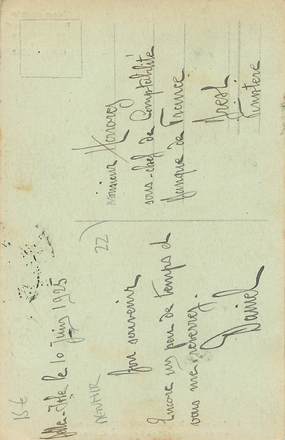 15 €
Belle-Isle le 10 Juin 1925
22)
Bon souvenir
Encore un peu de temps et
vous me reverrez.
Daniel
Monsieur
sous-chef de Comptabilité
Banque de France
Brest
Finistère